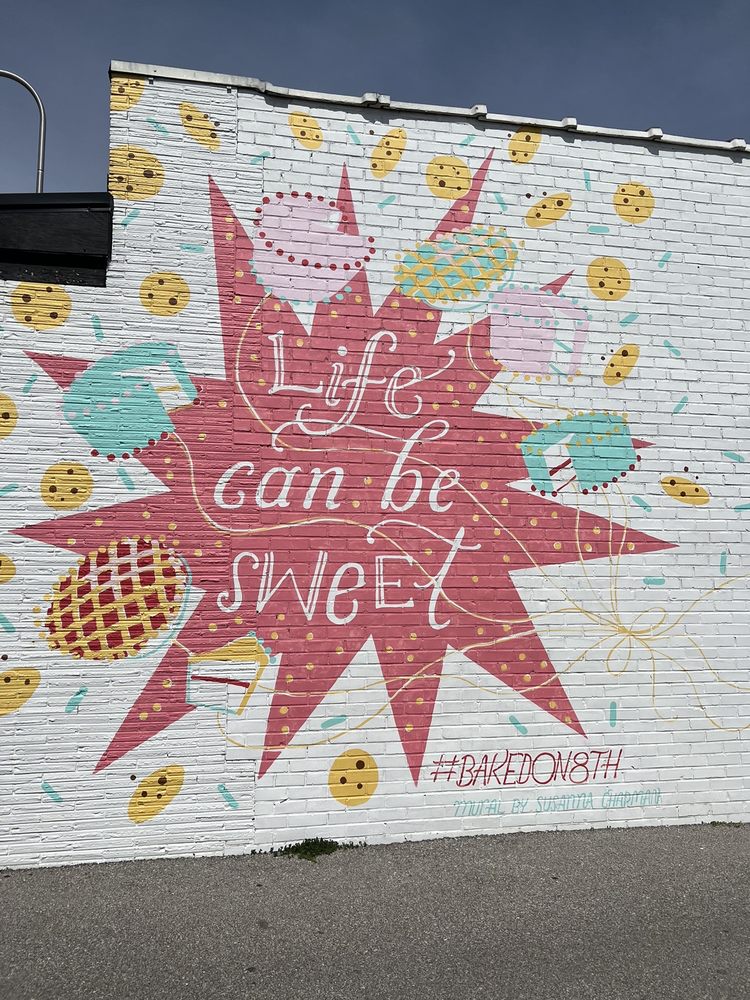 Life
can be
sweet
#BAKEDON8TH
MURAL BY SUSANNA CHAPMAN